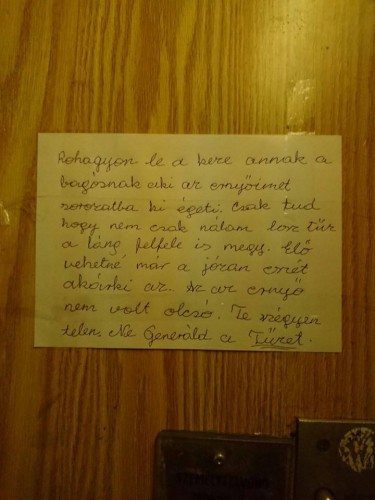 Rohagyon le a keze annak a
bagósnak aki az ernyőimet
sorozatba ki égeti. Csak tud
hogy nem csak nálam lesz tűz
a láng felfele is megy. Elő
vehetné már a józan eszét
akárki az. Az az ernyő
nem volt olcsó. Te szégyen
telen. Ne Generáld a Tüzet.